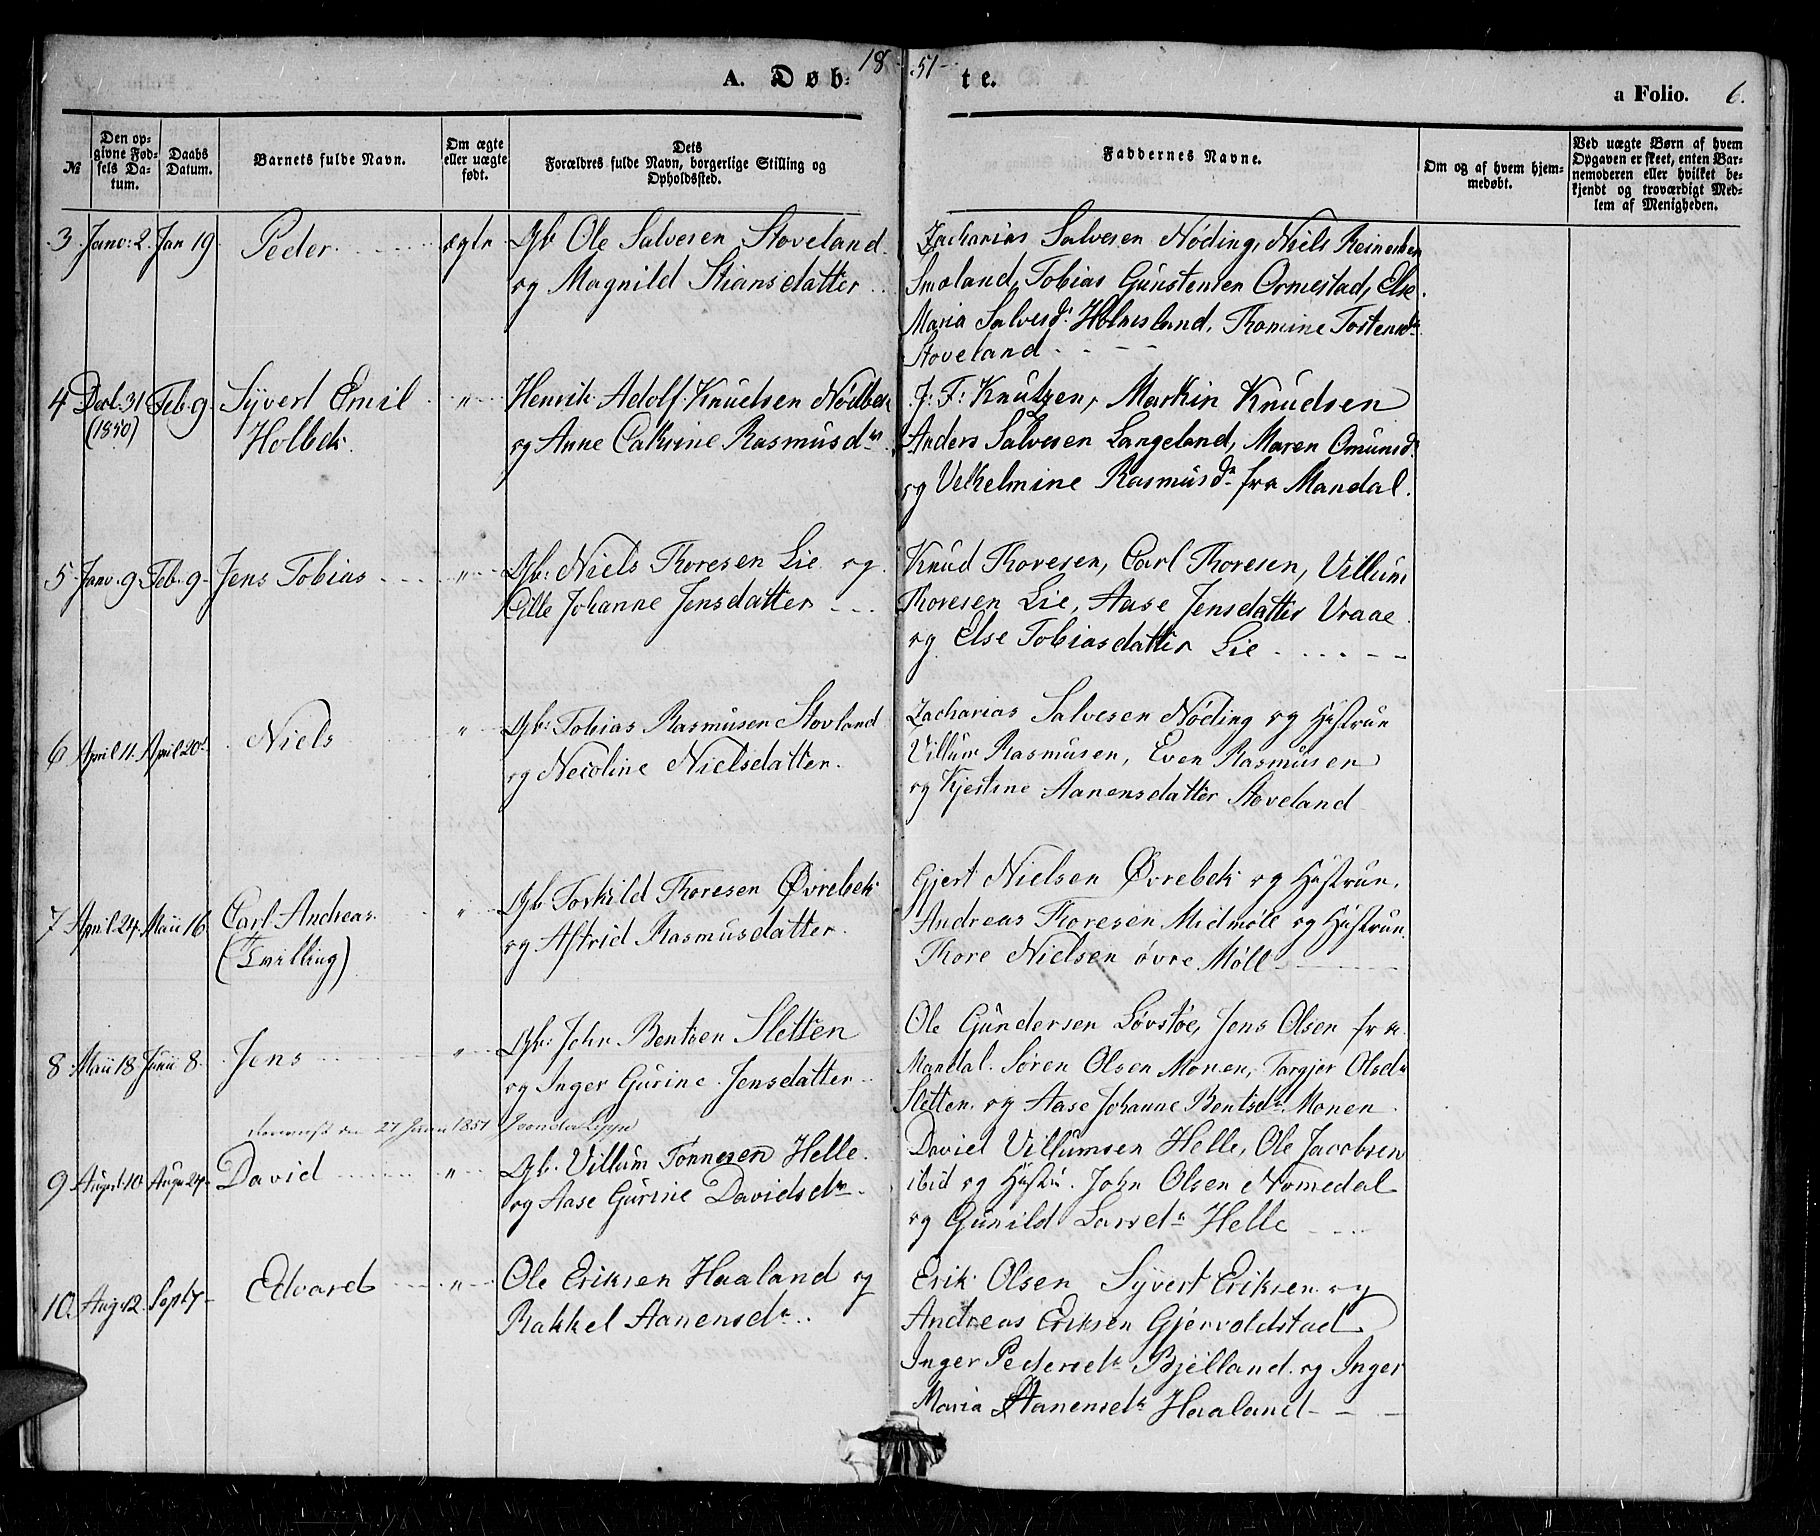 1851
A. Døbte.
a Folio. 6.
№
Den opgivne Fødsels Datum.
Daabs Datum.
Barnets fulde Navn.
Om ægte eller uægte født.
Dets Forældres fulde Navn, borgerlige Stilling og Opholdssted.
Faddernes Navne.
Om og af hvem hjemmedøbt.
Ved uægte Børn af hvem Opgaven er skeet, enten Barnemoderen eller hvilket bekjendt og troværdigt Medlem af Menigheden.
3. Janv: 2. Jan 19. Peder ægte Gb. Ole Salvesen Stoveland
og Magnild Stiansdatter
Zacharias Salvesen Nöding, Niels Reinertsen
Smoland, Tobias Gunstensen Ormestad, Else
Maria Salvesdr. Holmsland, Thomine Tostensdr
Stoveland
4 Decl. 31 (1850) Feb. 9. Syvert Emil " Henrik Adolf Knudsen Nödbek
Holbek. og Anne Cathrine Rasmusdr
J: F: Knutzen, Marthin Knudsen
Anders Salvesen Langeland, Maren Omundsd.
og Velhelmine Rasmusdr fra Mandal.
5 Janv. 9. Feb. 9. Jens Tobias " Gb: Niels Thoresen Lie og
Cille Johanne Jensdatter
Knud Thoresen, Carl Thoresen, Villum
Thoresen Lie, Aase Jensdatter Vraae
og Else Tobiasdatter Lie
6 April 11. April 20. Niels " Gb: Tobias Rasmusen Stovland
og Necoline Nielsdatter.
Zacharias Salvesen Nöding og Hustrun
Villum Rasmusen, Even Rasmusen
og Kjestine Aanensdatter Stoveland
7 April 24. Maii 16. Carl Andreas " Gb Torkild Thoresen Øvrebek
(Tvilling) og Astrid Rasmusdatter.
Gjert Nielsen Øvrebek og Hustrun.
Andreas Thoresen Midmöll og Hustrun.
Thore Nielsen övre Möll
8 Maii 18 Junii 8. Jens " Gb: John Bentsen Sletten
og Inger Gurine Jensdatter
Ole Gundersen Lövstöe, Jens Olsen fra
Mandal. Sören Olsen Monen, Targjer Olsdr
Sletten. og Aase Johanne Bentsdr. Monen
9 August 10. Augu 24. David " Gb. Villum Tønnesen Helle.
og Aase Gurine Davidsdr.
David Villumsen Helle, Ole Jacobsen
ibid og Hustru. John Olsen Nomedal
og Gunild Larsdr Helle
10. Aug 12. Sept 7 Edvard " Ole Eriksen Haaland og
Rakkel Aanensdr.
Erik Olsen Syvert Eriksen og
Andreas Eriksen Gjervoldstad
Inger Pedersdr Bjelland og Inger
Maria Aanensdr Haaland